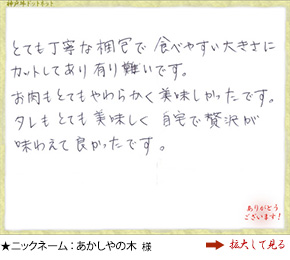 神戸牛ドットネット
とても丁寧な梱包で食べやすい大きさに
カットしてあり有り難いです。
お肉もとてもやわらかく美味しかったです。
タレもとても美味しく自宅で贅沢が
味わえて良かったです。
ありがとう
ございます!
★ニックネーム：あかしやの木 様
拡大して見る